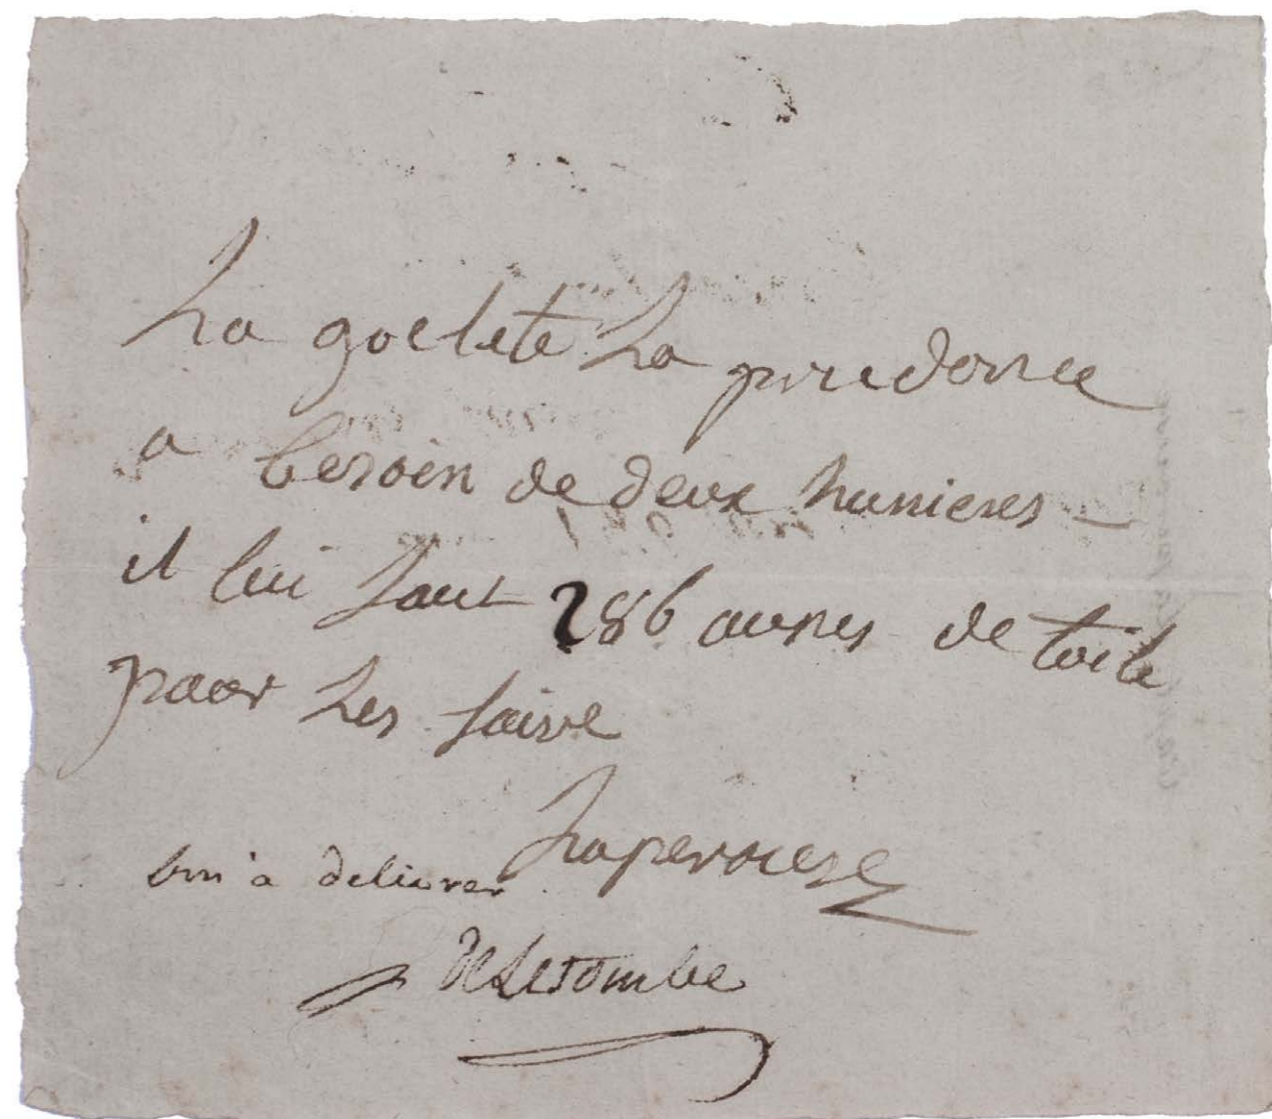 La goelete La prudence
a besoin de deux huniers -
il lui faut 286 aunes de toile
pour Les faire
Laperouse
bon à délivrer